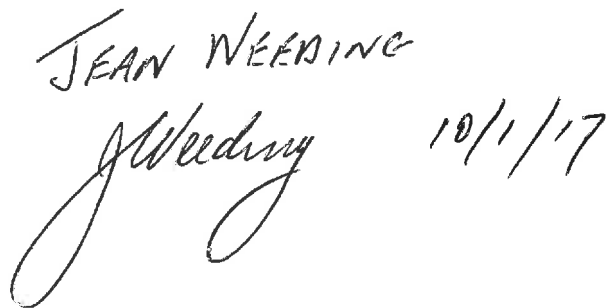 JEAN WEEDING
JWeeding 10/1/17